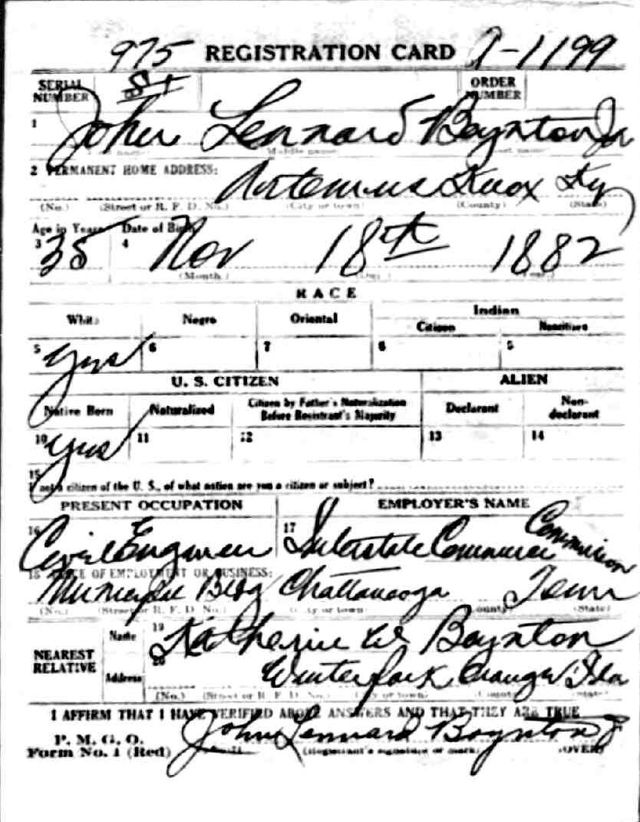 975 REGISTRATION CARD A-1199
SERIAL NUMBER ORDER NUMBER
1 John Lennard Boynton Jr
2 PERMANENT HOME ADDRESS: Artemus Knox Ky
(No.) (Street or R. F. D. No.) (City or town) (County) (State)
Age in Years Date of Birth
3 35 4 Nov 18th 1882
(Month.) (Day.) (Year.)
RACE
White Negro Oriental Indian
Citizen Noncitizen
5 yes 6 7 8 9
U. S. CITIZEN ALIEN
Native Born Naturalized Citizen by Father's Naturalization Before Registrant's Majority Declarant Non-declarant
10 yes 11 12 13 14
15
If not a citizen of the U. S., of what nation are you a citizen or subject?
PRESENT OCCUPATION EMPLOYER'S NAME
16 Civil Engineer 17 Interstate Commerce Commission
18 PLACE OF EMPLOYMENT OR BUSINESS:
Municipal Bldg Chattanooga Tenn
(No.) (Street or R. F. D. No.) (City or town) (County) (State)
NEAREST RELATIVE
Name 19 Katherine W Boynton
Address 20 Winter Park Orange Fla
(No.) (Street or R. F. D. No.) (City or town) (County) (State)
I AFFIRM THAT I HAVE VERIFIED ABOVE ANSWERS AND THAT THEY ARE TRUE
P. M. G. O.
Form No. 1 (Red) John Lennard Boynton Jr
(Registrant's signature or mark) (OVER)